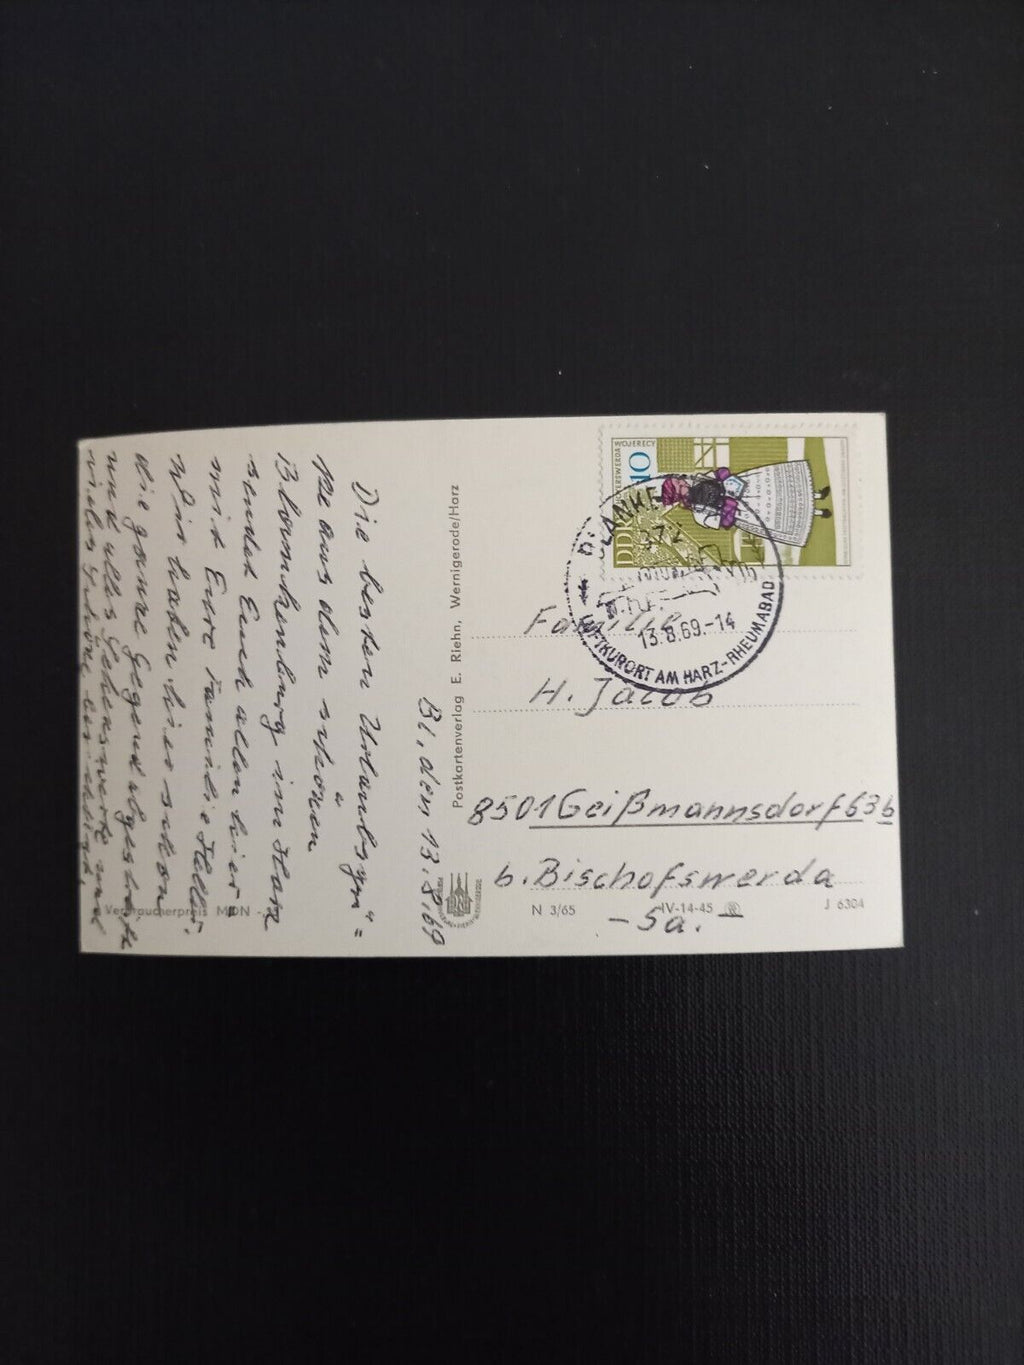 Bl, den 13.8.69
Die besten Urlaubsgrü=
ße aus dem schönen
Blankenburg im Harz
sendet Euch allen hier=
mit Eure Familie
Wir haben hier schon
die ganze Gegend abgegrast
und alles Sehenswerte und
vieles Schöne besichtigt.
Verbraucherpreis MDN
Postkartenverlag E. Riehn, Wernigerode/Harz
HOYERSWERDA WOJERECY
10
DDR
BLANKE
372
13.8.69.-14
LUFTKURORT AM HARZ-RHEUMABAD
Familie
H. Jacob
8501 Geißmannsdorf 63b
b. Bischofswerda
-Sa.-
N 3/65 IV-14-45 J 6304